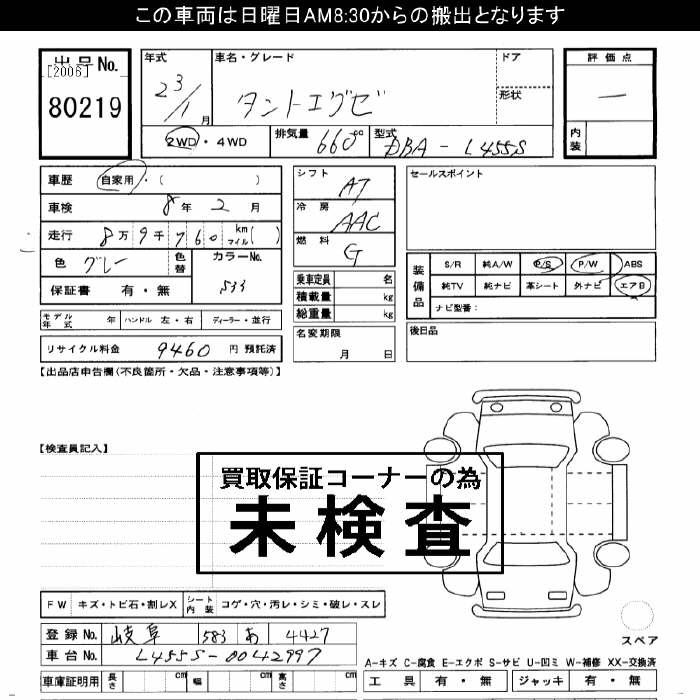 この車両は日曜日AM8:30からの搬出となります
出品No.
[2006]
80219
年式 23/1月
車名・グレード タントエグゼ
ドア
形状
評価点 一
内装
2WD・4WD
排気量 660cc
型式 DBA-L455S
車歴 自家用・( )
車検 8年2月
走行 8万9千760 km マイル( )
色 グレー 色替 カラーNo. S33
保証書 有・無
モデル年式 年 ハンドル 左・右 ディーラー・並行
リサイクル料金 9460円 預託済
シフト AT
冷房 AAC
燃料 G
乗車定員 名
積載量 kg
総重量 kg
名変期限 月 日
セールスポイント
装備品 S/R 純A/W P/S P/W ABS
純TV 純ナビ 革シート 外ナビ エアB
ナビ型番:
後日品
【出品店申告欄(不良箇所・欠品・注意事項等)】
【検査員記入】
買取保証コーナーの為
未検査
FW キズ・トビ石・割レX シート内装 コゲ・穴・汚レ・シミ・破レ・スレ
登録No. 岐阜 583 あ 4427
車台No. L455S-0042997
車庫証明用 長さ cm 幅 cm 高さ cm
スペア
A-キズ C-腐食 E-エクボ S-サビ U-凹ミ W-補修 XX-交換済
工具 有・無 ジャッキ 有・無